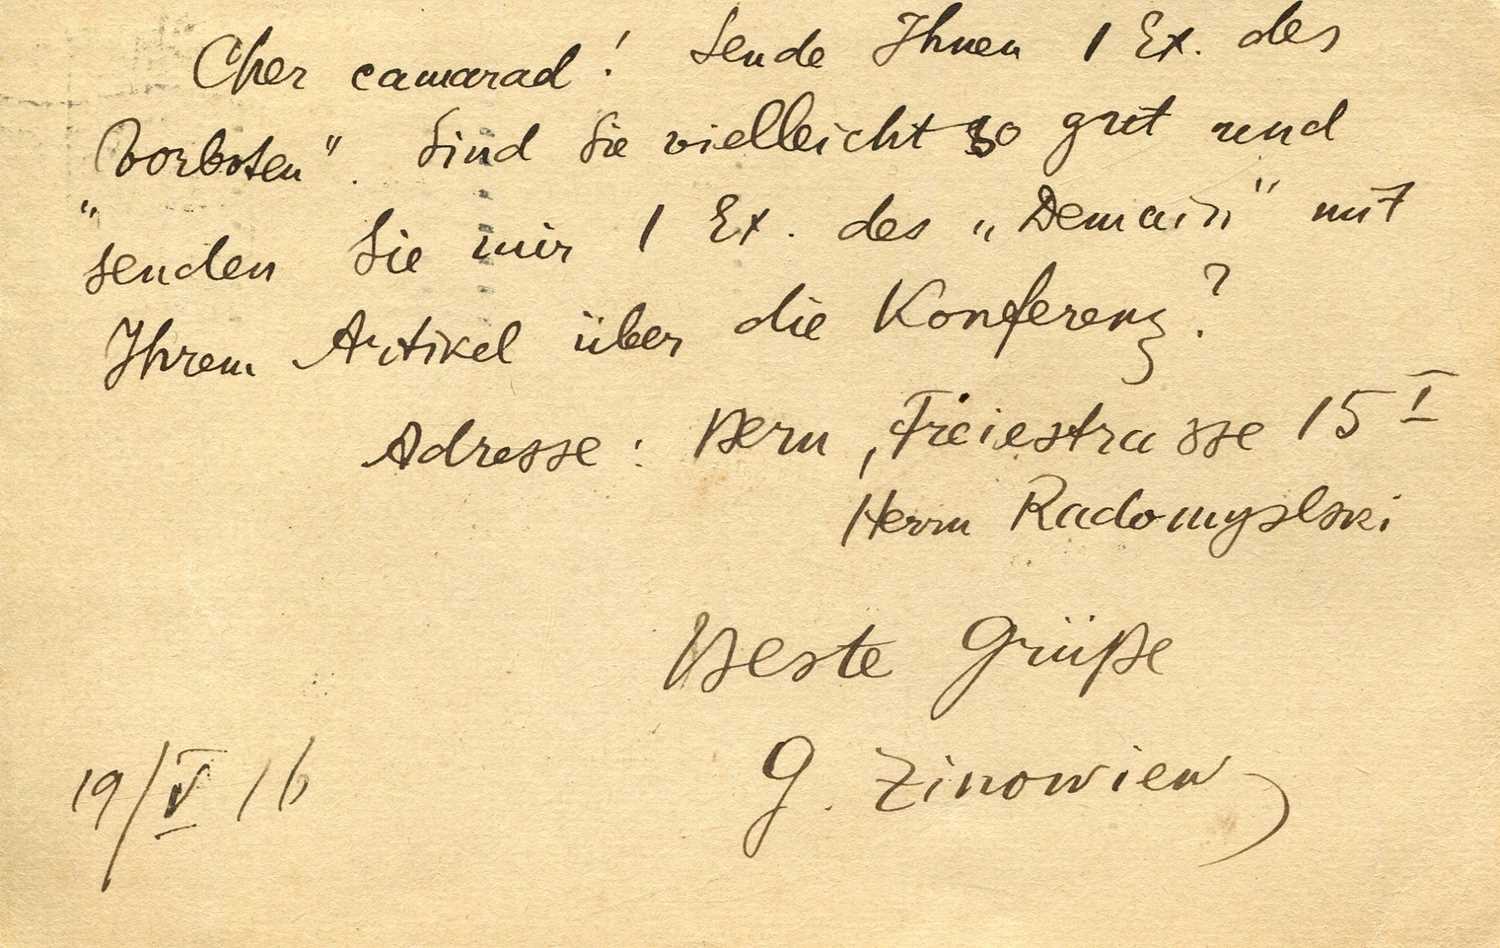 Cher camarad! Sende Ihnen 1 Ex. des
„Vorboten". Sind Sie vielleicht so gut und
senden Sie mir 1 Ex. des „Demain" mit
Ihrem Artikel über die Konferenz?
Adresse: Bern, Freiestrasse 15 I
Herrn Radomyslski
Beste Grüße
G. Zinowiew
19/V 16